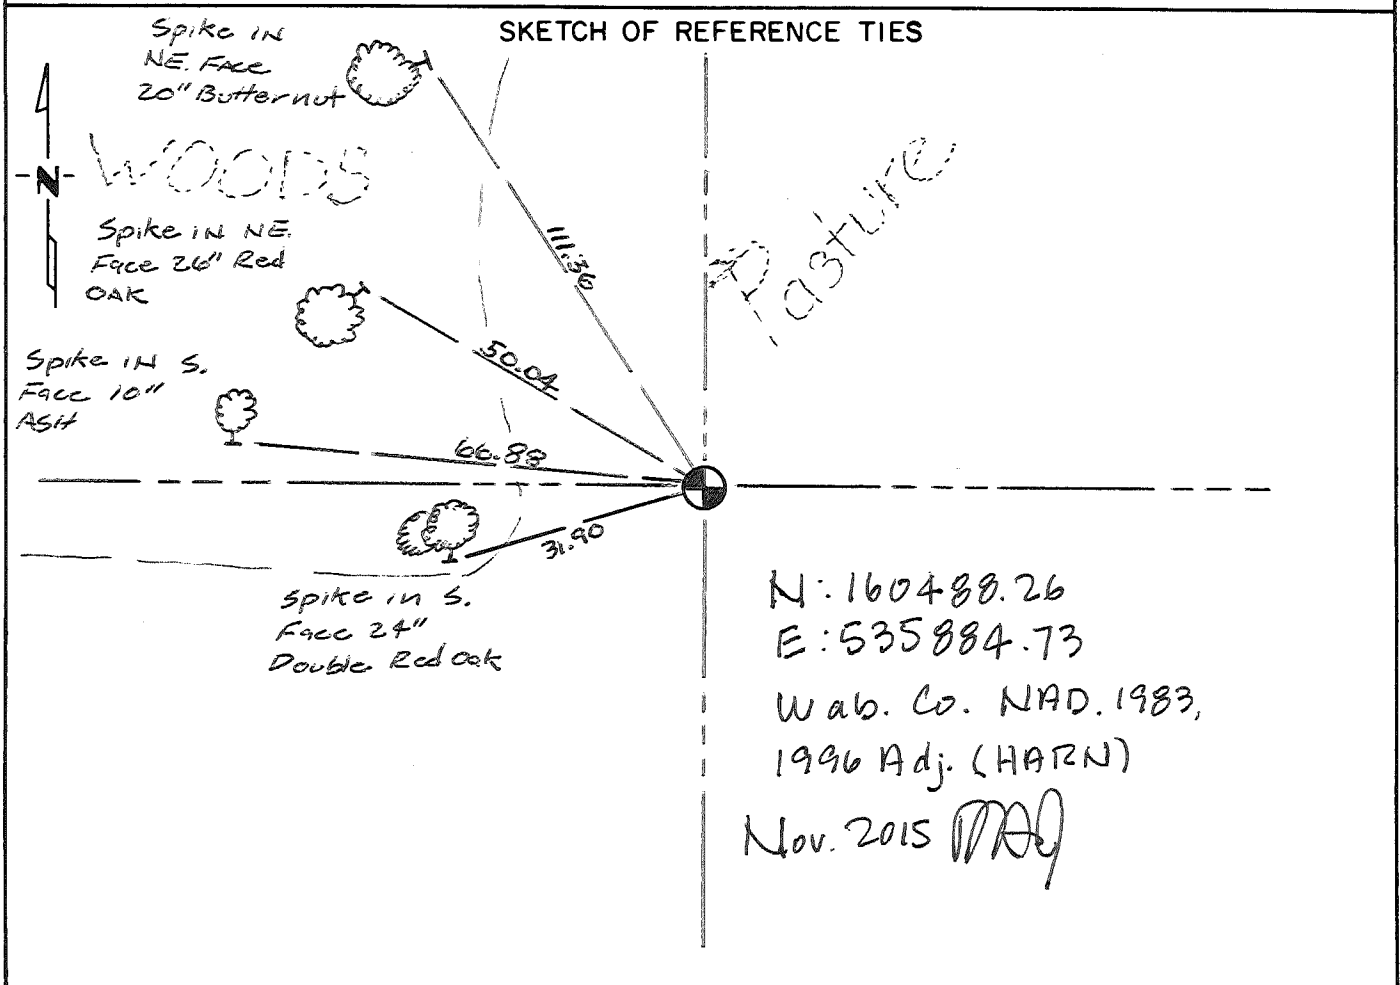 SKETCH OF REFERENCE TIES
Spike IN
NE. Face
20" Butternut
N
WOODS
Pasture
Spike IN NE.
Face 26" Red
OAK
111.36
50.04
Spike IN S.
Face 10"
ASH
66.88
31.90
Spike in S.
Face 24"
Double Red Oak
N: 160488.26
E: 535884.73
Wab. Co. NAD. 1983,
1996 Adj. (HARN)
Nov. 2015